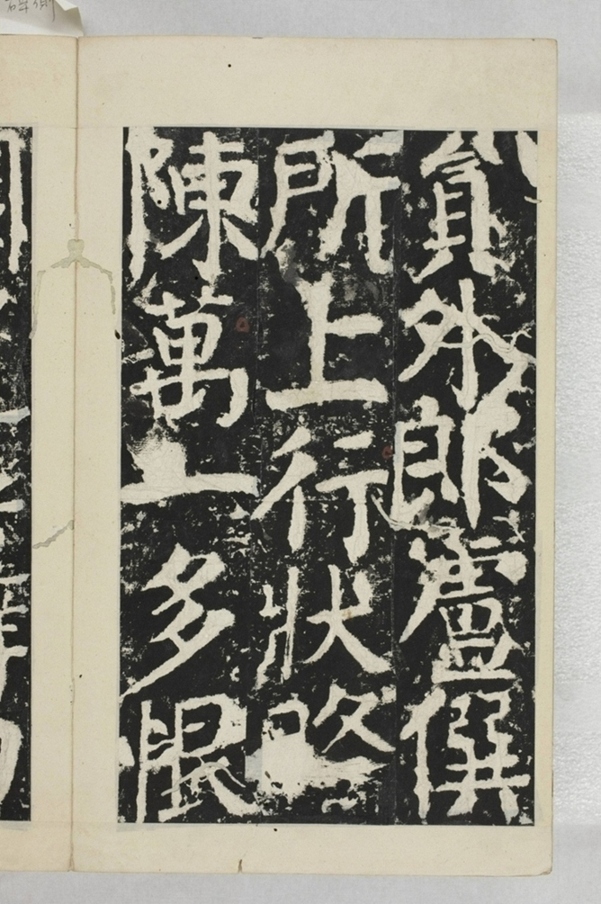 貟外郎盧僎
所上行狀略
陳萬一多恨